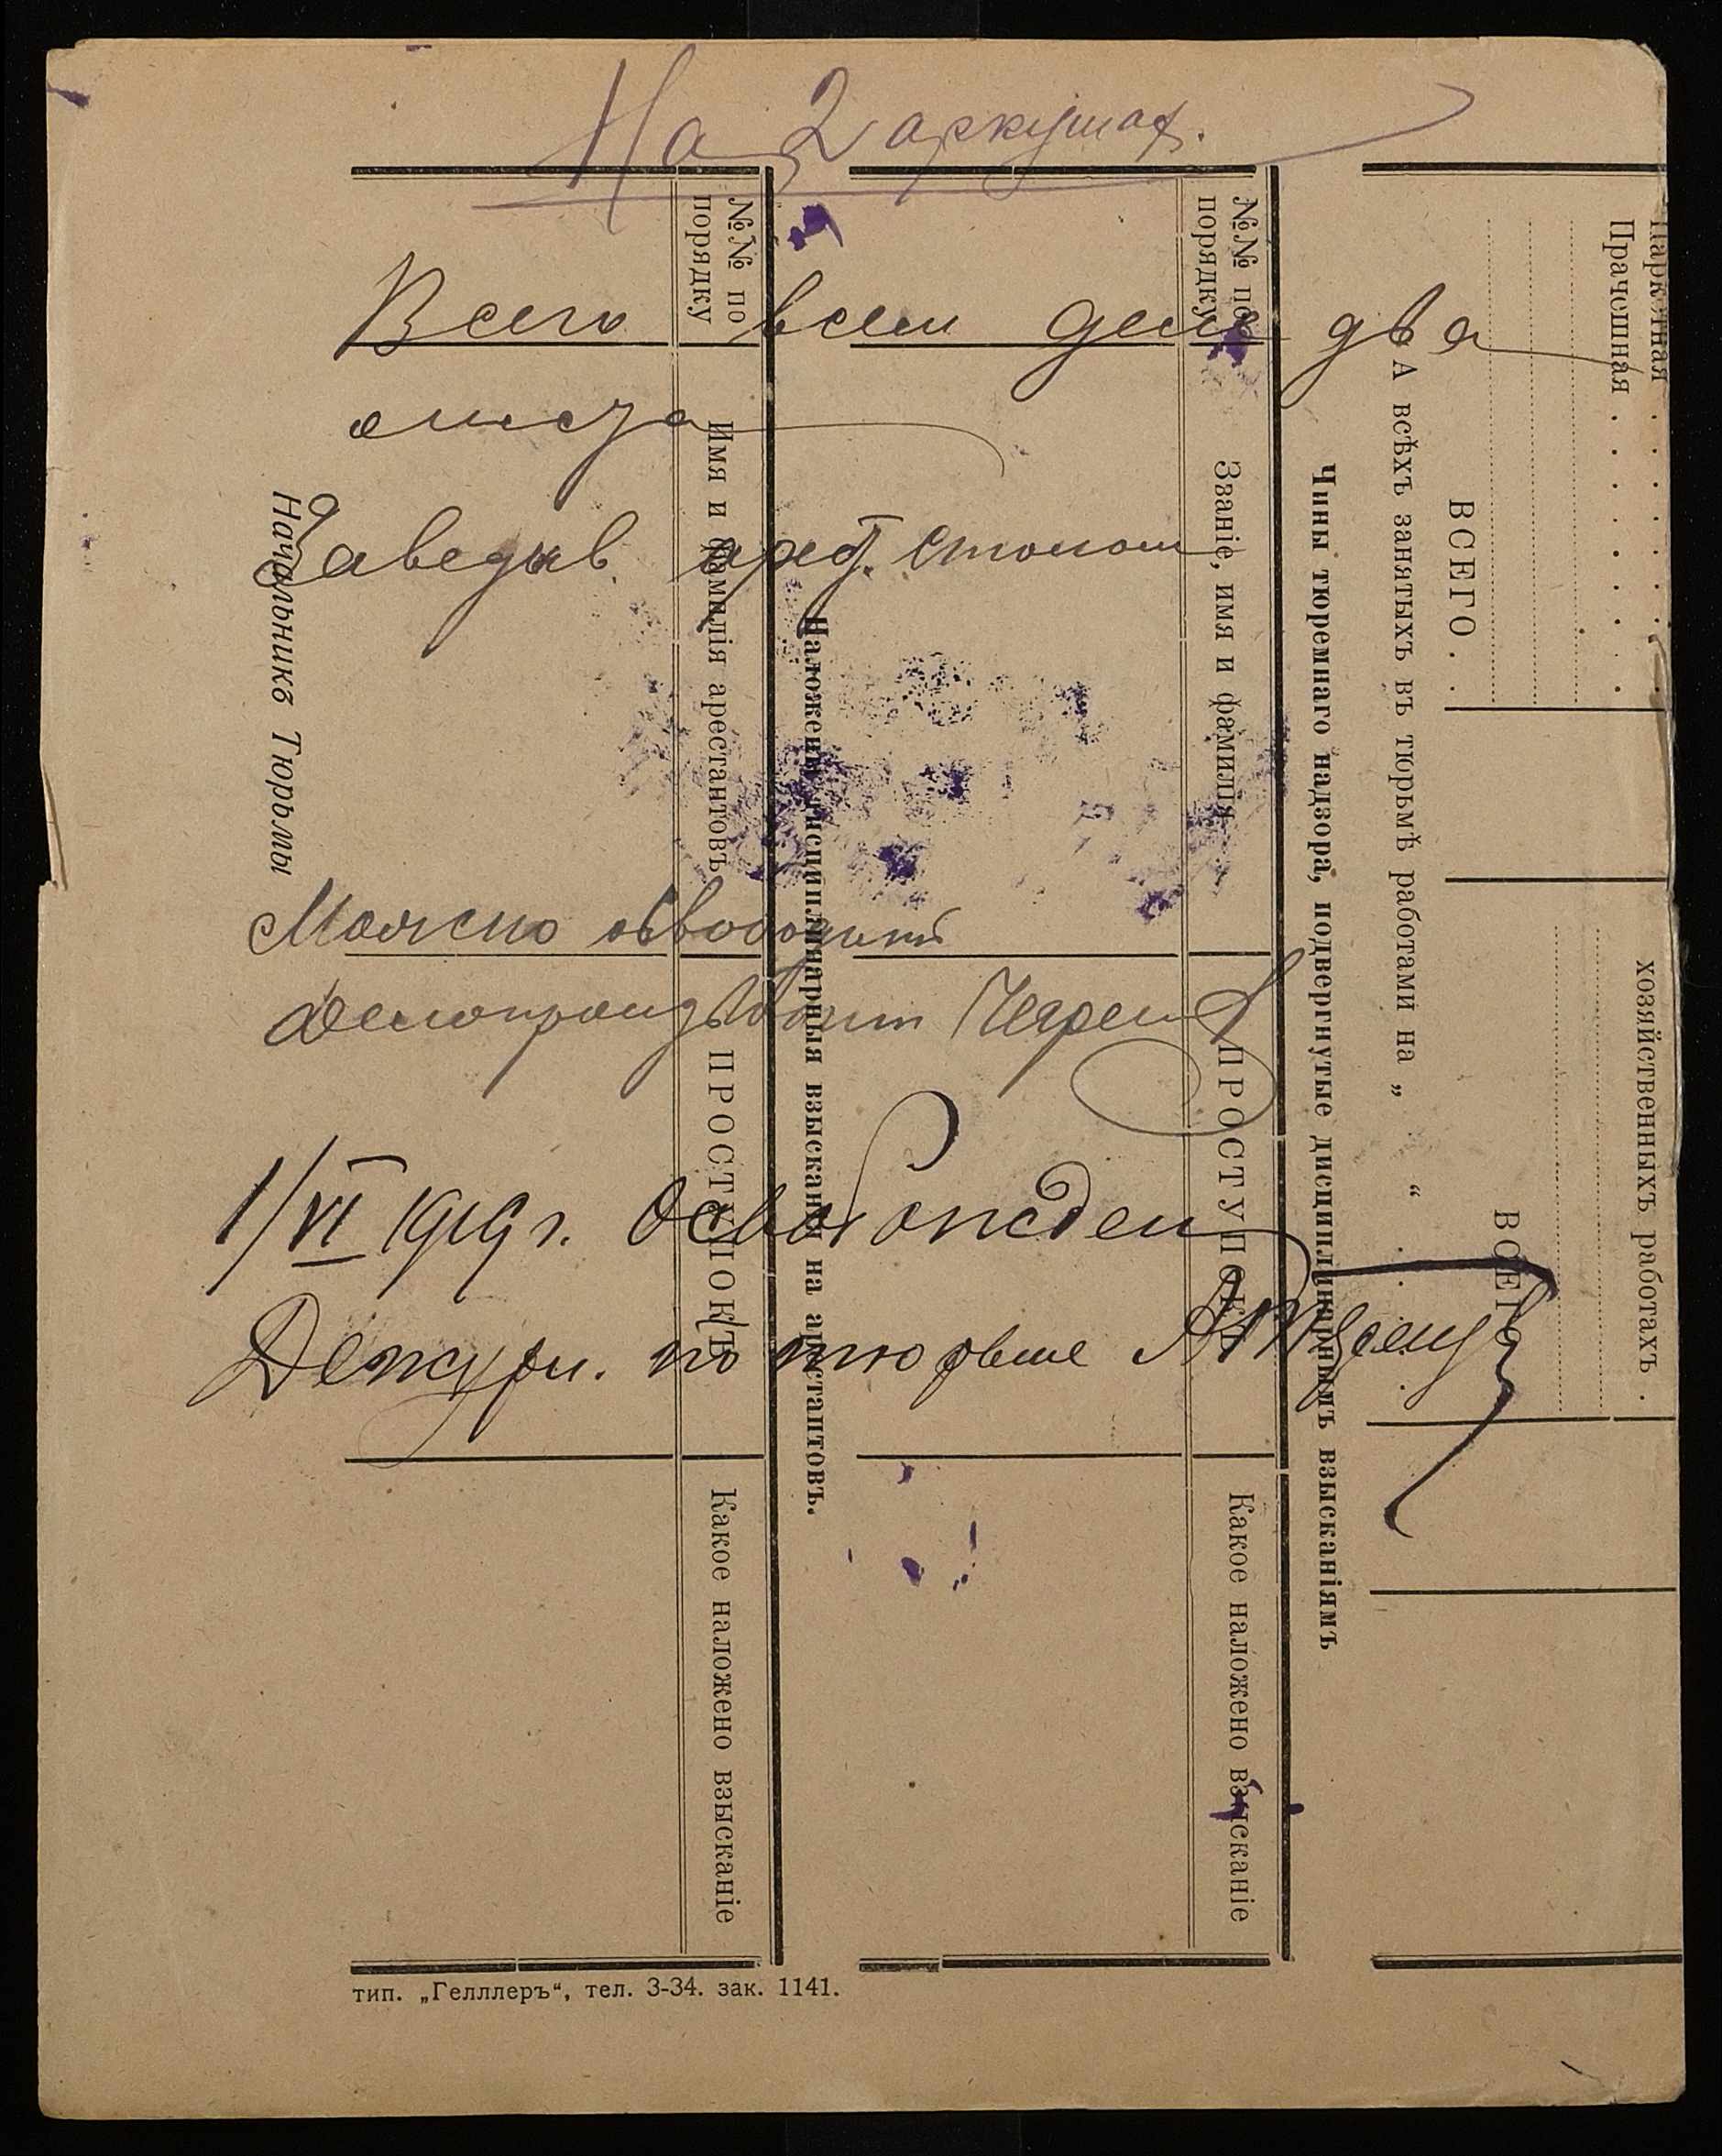 На 2 аркушах.
Всего всем деле два
листа
Заведыв. арест. столом
Можно освободить
Делопроизводит
1/VI 1919 г. Освобожден
Дежурн. по тюрьме
Паркетная
Прачешная
хозяйственныхъ работахъ
ВСЕГО
ВСЕГО
А всѣхъ занятыхъ въ тюрьмѣ работами на „ “
Чины тюремнаго надзора, подвергнутые дисциплинарнымъ взысканіямъ
№№ по порядку
Званіе, имя и фамилія
ПРОСТУПОКЪ
Какое наложено взысканіе
Наложены дисциплинарныя взысканія на арестантовъ.
№№ по порядку
Имя и фамилія арестантовъ
ПРОСТУПОКЪ
Какое наложено взысканіе
Начальникъ Тюрьмы
тип. „Гелллеръ“, тел. 3-34. зак. 1141.